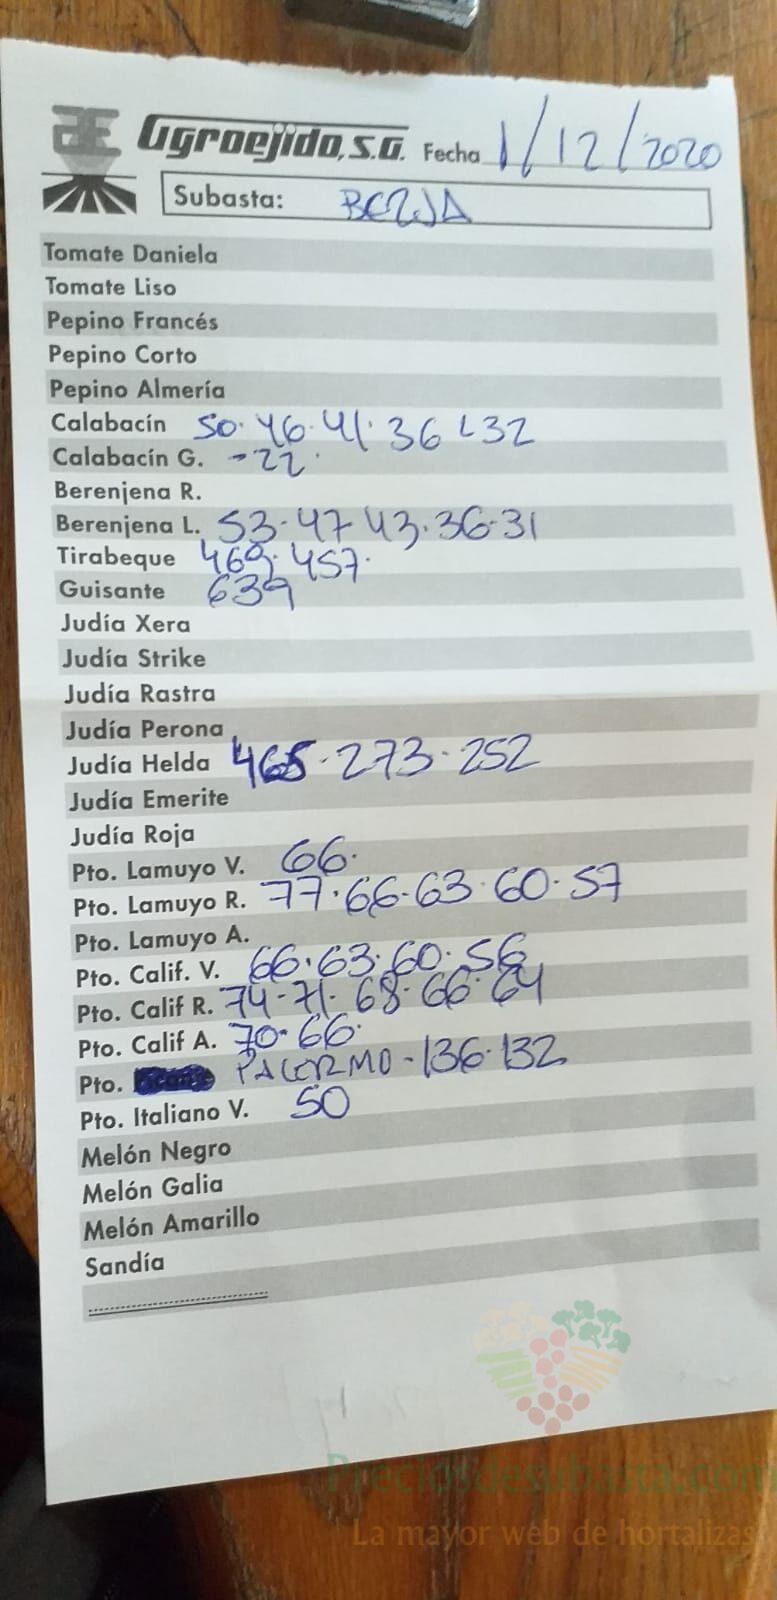 Agroejido, S.A. Fecha 1/12/2020
Subasta: BERJA
Tomate Daniela
Tomate Liso
Pepino Francés
Pepino Corto
Pepino Almería
Calabacín 50. 46. 41. 36 L 32
Calabacín G. -22.
Berenjena R.
Berenjena L. 53-47 43.36-31
Tirabeque 469. 457.
Guisante 639
Judía Xera
Judía Strike
Judía Rastra
Judía Perona
Judía Helda 465. 273. 252
Judía Emerite
Judía Roja
Pto. Lamuyo V. 66.
Pto. Lamuyo R. 77.66-63.60.57
Pto. Lamuyo A.
Pto. Calif. V. 66.63.60.56
Pto. Calif R. 74-71. 68.66-64
Pto. Calif A. 70.66.
Pto. PALERMO-136.132
Pto. Italiano V. 50
Melón Negro
Melón Galia
Melón Amarillo
Sandía
Preciosdesubasta.com
La mayor web de hortalizas